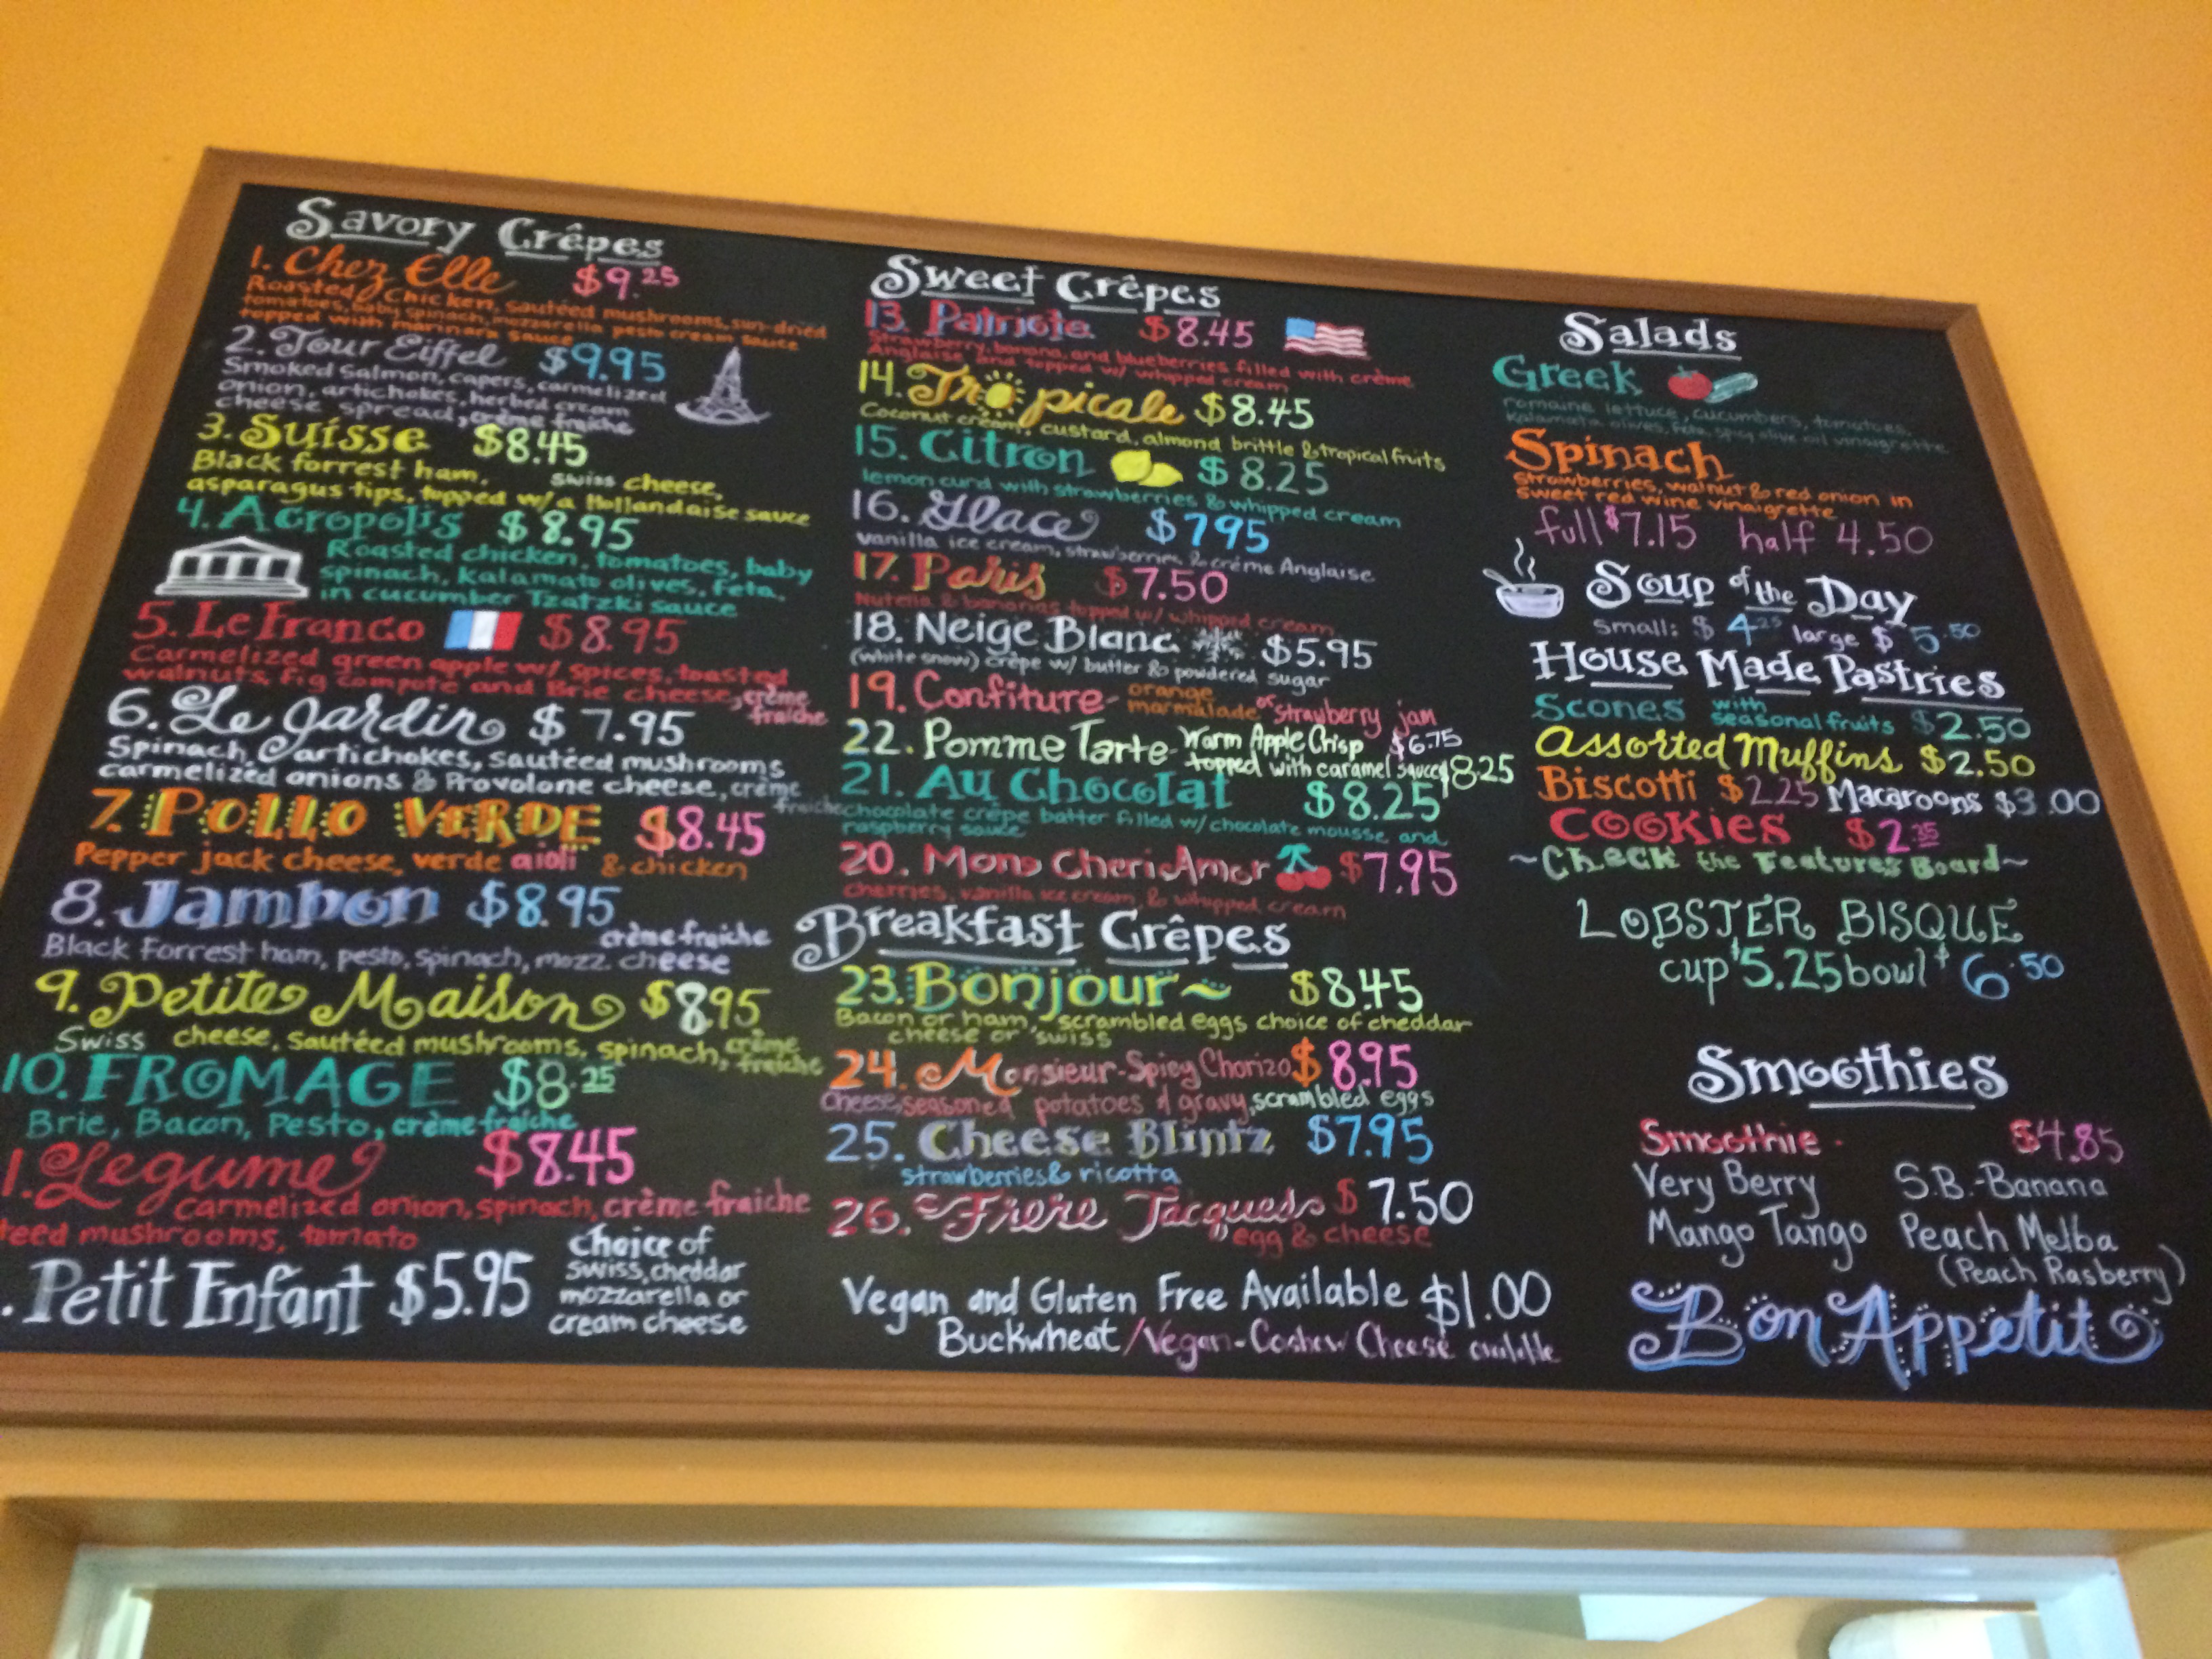 Savory Crêpes
1. Chez Elle $9.25
Roasted Chicken, sautéed mushrooms, sun-dried
tomatoes, baby spinach, mozzarella pesto cream sauce
topped with marinara sauce
2. Tour Eiffel $9.95
Smoked Salmon, capers, carmelized
onion, artichokes, herbed cream
cheese spread, crême fraîche
3. Suisse $8.45
Black forrest ham, swiss cheese,
asparagus tips, topped w/a Hollandaise sauce
4. Acropolis $8.95
Roasted chicken, tomatoes, baby
spinach, kalamata olives, feta,
in cucumber Tzatzki sauce
5. Le Franco $8.95
Carmelized green apple w/ spices, toasted
walnuts, fig compote and Brie cheese, crème
fraiche
6. Le Jardin $7.95
Spinach, artichokes, sautéed mushrooms
carmelized onions & Provolone cheese, crème
fraiche
7. POLLO VERDE $8.45
Pepper jack cheese, verde aioli & chicken
8. Jambon $8.95
crème fraiche
Black forrest ham, pesto, spinach, mozz. cheese
9. Petite Maison $8.95
Swiss cheese, sautéed mushrooms, spinach, crème
fraiche
10. FROMAGE $8.25
Brie, Bacon, Pesto, crème fraiche
1. Legume $8.45
carmelized onion, spinach, crème fraiche
teed mushrooms, tomato
. Petit Enfant $5.95
Choice of
swiss, cheddar
mozzarella or
cream cheese
Sweet Crêpes
13. Patriote $8.45
Strawberry, banana, and blueberries filled with crème
Anglaise and topped w/ whipped cream
14. Tropicale $8.45
Coconut cream, custard, almond brittle & tropical fruits
15. Citron $8.25
lemon curd with strawberries & whipped cream
16. Glace $7.95
vanilla ice cream, strawberries & créme Anglaise
17. Paris $7.50
Nutella & bananas topped w/ whipped cream
18. Neige Blanc $5.95
(white snow) crêpe w/ butter & powdered sugar
19. Confiture- orange marmalade or strawberry jam
$6.75
22. Pomme Tarte- Warm Apple Crisp
topped with caramel sauce $8.25
21. Au Chocolat $8.25
chocolate crêpe batter filled w/ chocolate mousse and
raspberry sauce
20. Mon Cheri Amor $7.95
cherries, vanilla ice cream, & whipped cream
Breakfast Crêpes
23. Bonjour~ $8.45
Bacon or ham, scrambled eggs choice of cheddar
cheese or swiss
24. Monsieur-Spicy Chorizo $8.95
Cheese, seasoned potatoes & gravy, scrambled eggs
25. Cheese Blintz $7.95
strawberries & ricotta
26. Frère Jacques $7.50
egg & cheese
Vegan and Gluten Free Available $1.00
Buckwheat/Vegan-Cashew Cheese available
Salads
Greek
romaine lettuce, cucumbers, tomatoes,
kalamata olives, feta, spicy olive oil vinaigrette
Spinach
strawberries, walnut & red onion in
sweet red wine vinaigrette
full $7.15 half 4.50
Soup of the Day
small: $4.25 large $5.50
House Made Pastries
Scones with seasonal fruits $2.50
Assorted Muffins $2.50
Biscotti $2.25 Macaroons $3.00
Cookies $2.35
~Check the Features Board~
LOBSTER BISQUE
cup $5.25 bowl $6.50
Smoothies
Smoothie - $4.85
Very Berry S.B.-Banana
Mango Tango Peach Melba
(Peach Rasberry)
Bon Appetit